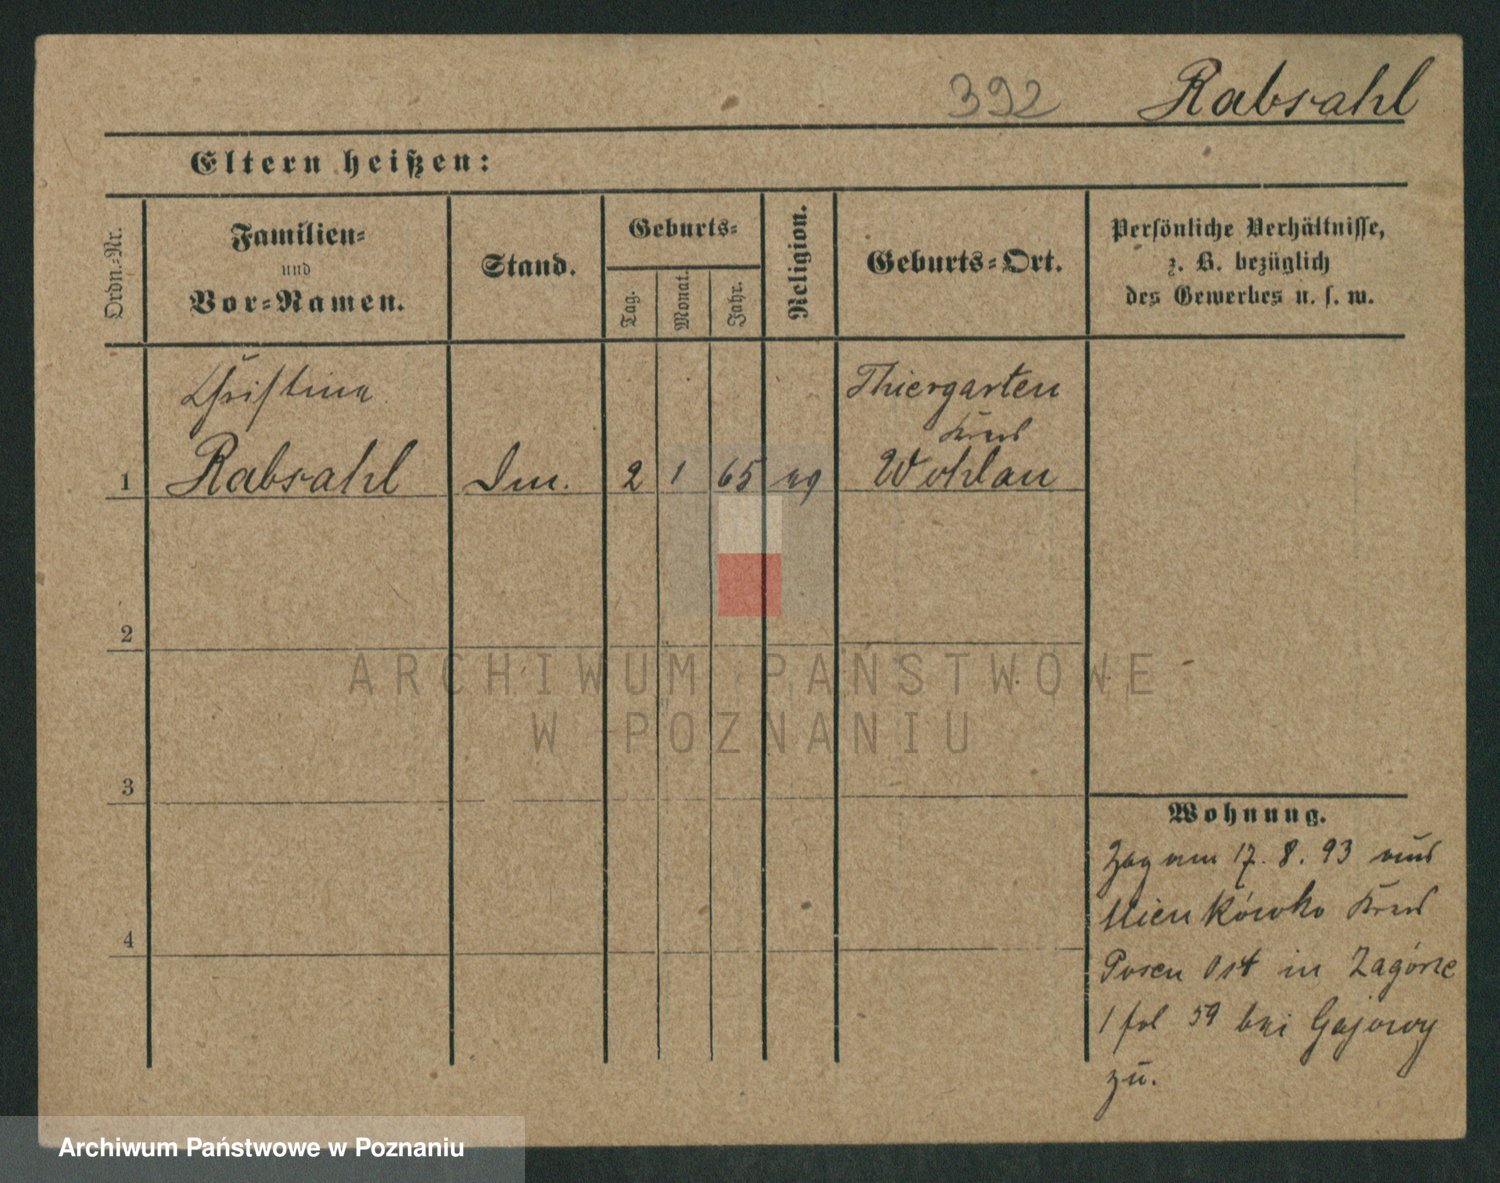 392 Rabsahl
Eltern heißen:
Ordn.-Nr.
Familien-
und
Vor-Namen.
Stand.
Geburts-
Tag.
Monat.
Jahr.
Religion.
Geburts-Ort.
Persönliche Verhältnisse,
z. B. bezüglich
des Gewerbes u. s. w.
Christina
Rabsahl
1
2 1 65 ev
Thiergarten
Kreis
Wohlau
2
3
4
ARCHIWUM PAŃSTWOWE
W POZNANIU
Wohnung.
Zog am 17. 8. 93 aus
Kreis
Posen Ost in Zagórze
1 fol 59 bei Gajowy
zu.
Archiwum Państwowe w Poznaniu